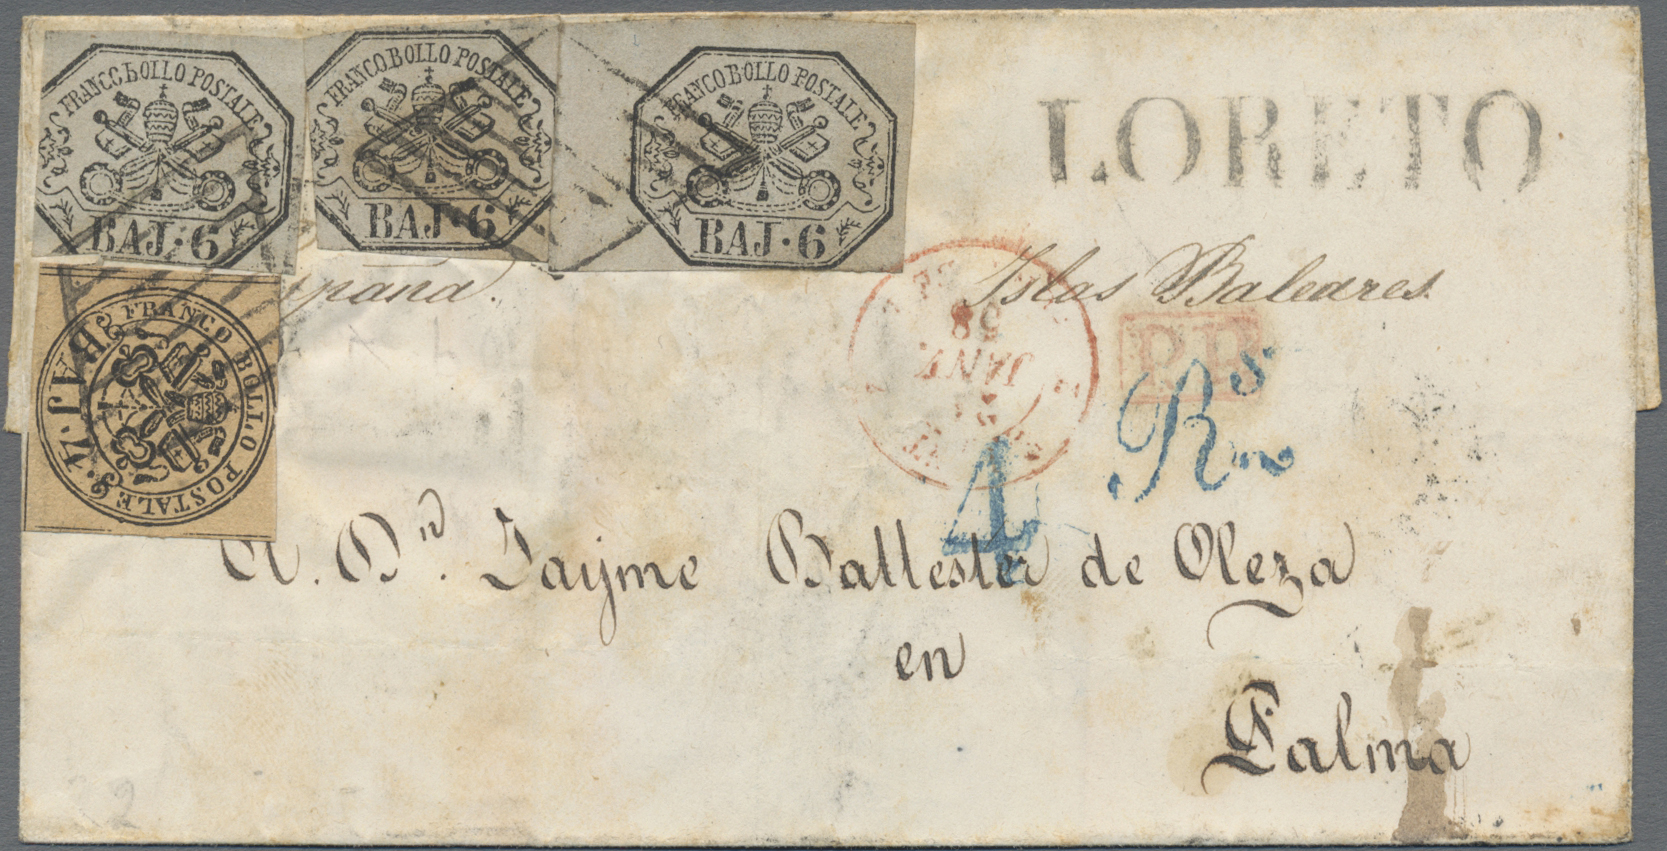 FRANCO BOLLO POSTALE
BAJ·6
FRANCO BOLLO POSTALE
BAJ·6
FRANCO BOLLO POSTALE
BAJ·6
LORETO
Islas Baleares
FRANCO BOLLO POSTALE
BAJ
58
JANV.
P.P.
4 Rs
A. Dn. Jayme Ballester de Oleza
en
Palma
2